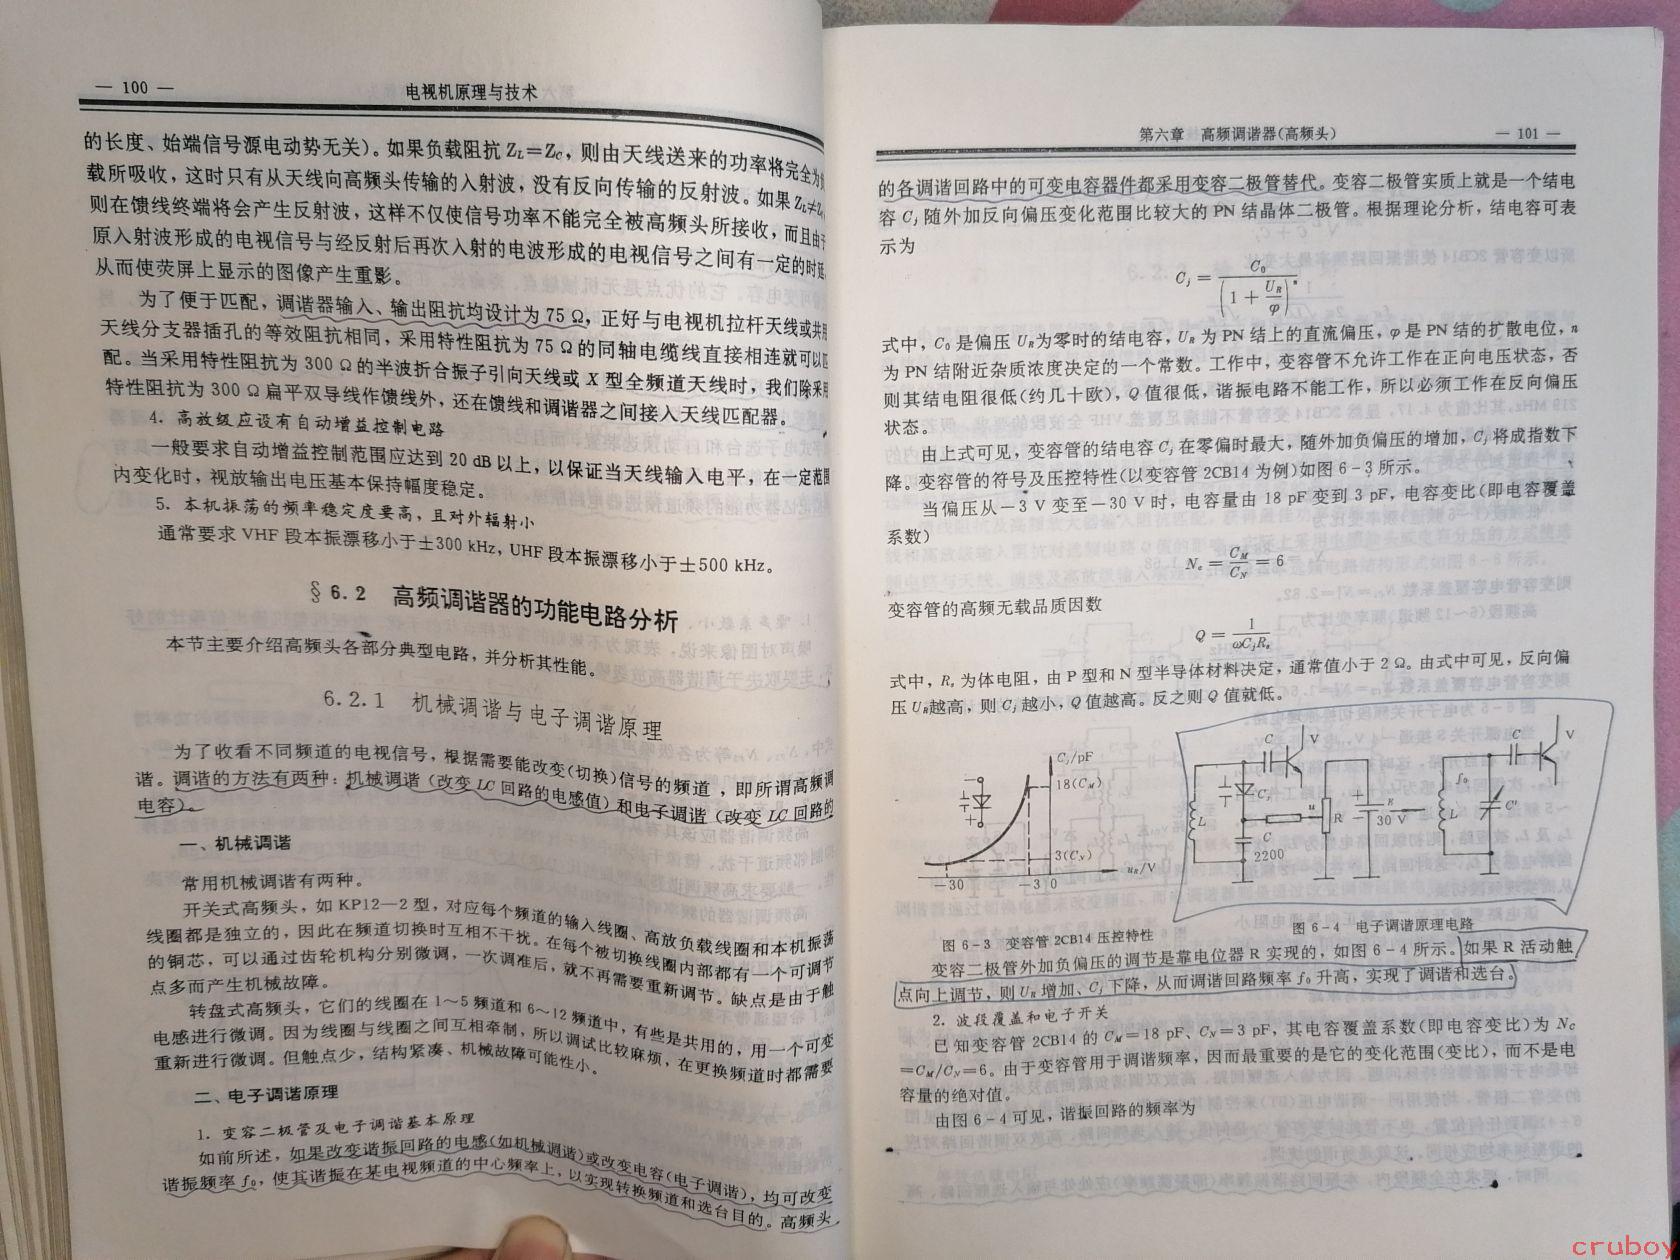 — 100 —
电视机原理与技术
的长度、始端信号源电动势无关)。如果负载阻抗 Z_L=Z_C，则由天线送来的功率将完全为
载所吸收，这时只有从天线向高频头传输的入射波，没有反向传输的反射波。如果 Z_L≠
则在馈线终端将会产生反射波，这样不仅使信号功率不能完全被高频头所接收，而且由于
原入射波形成的电视信号与经反射后再次入射的电波形成的电视信号之间有一定的时延，
从而使荧屏上显示的图像产生重影。
为了便于匹配，调谐器输入、输出阻抗均设计为 75 Ω，正好与电视机拉杆天线或共用
天线分支器插孔的等效阻抗相同，采用特性阻抗为 75 Ω 的同轴电缆线直接相连就可以匹
配。当采用特性阻抗为 300 Ω 的半波折合振子引向天线或 X 型全频道天线时，我们除采用
特性阻抗为 300 Ω 扁平双导线作馈线外，还在馈线和调谐器之间接入天线匹配器。
4. 高放级应设有自动增益控制电路
一般要求自动增益控制范围应达到 20 dB 以上，以保证当天线输入电平，在一定范围
内变化时，视放输出电压基本保持幅度稳定。
5. 本机振荡的频率稳定度要高，且对外辐射小
通常要求 VHF 段本振漂移小于±300 kHz，UHF 段本振漂移小于±500 kHz。
§6.2 高频调谐器的功能电路分析
本节主要介绍高频头各部分典型电路，并分析其性能。
6.2.1 机械调谐与电子调谐原理
为了收看不同频道的电视信号，根据需要能改变(切换)信号的频道，即所谓高频调
谐。调谐的方法有两种：机械调谐(改变 LC 回路的电感值)和电子调谐(改变 LC 回路的
电容)。
一、机械调谐
常用机械调谐有两种。
开关式高频头，如 KP12—2 型，对应每个频道的输入线圈、高放负载线圈和本机振荡
线圈都是独立的，因此在频道切换时互相不干扰。在每个被切换线圈内部都有一个可调节
的铜芯，可以通过齿轮机构分别微调，一次调准后，就不再需要重新调节。缺点是由于触
点多而产生机械故障。
转盘式高频头，它们的线圈在 1～5 频道和 6～12 频道中，有些是共用的，用一个可变
电感进行微调。因为线圈与线圈之间互相牵制，所以调试比较麻烦，在更换频道时都需要
重新进行微调。但触点少，结构紧凑、机械故障可能性小。
二、电子调谐原理
1. 变容二极管及电子调谐基本原理
如前所述，如果改变谐振回路的电感(如机械调谐)或改变电容(电子调谐)，均可改变
谐振频率 f₀，使其谐振在某电视频道的中心频率上，以实现转换频道和选台目的。高频头
第六章 高频调谐器(高频头)
— 101 —
的各调谐回路中的可变电容器件都采用变容二极管替代。变容二极管实质上就是一个结电
容 C_j 随外加反向偏压变化范围比较大的 PN 结晶体二极管。根据理论分析，结电容可表
示为
C_j = C₀/(1 + U_R/φ)^n
式中，C₀ 是偏压 U_R为零时的结电容，U_R 为 PN 结上的直流偏压，φ 是 PN 结的扩散电位，n
为 PN 结附近杂质浓度决定的一个常数。工作中，变容管不允许工作在正向电压状态，否
则其结电阻很低(约几十欧)，Q 值很低，谐振电路不能工作，所以必须工作在反向偏压
状态。
由上式可见，变容管的结电容 C_j 在零偏时最大，随外加负偏压的增加，C_j 将成指数下
降。变容管的符号及压控特性(以变容管 2CB14 为例)如图 6-3 所示。
当偏压从－3 V 变至－30 V 时，电容量由 18 pF 变到 3 pF，电容变比(即电容覆盖
系数)
N_c = C_M/C_N = 6
变容管的高频无载品质因数
Q = 1/(ωC_jR_s)
式中，R_s 为体电阻，由 P 型和 N 型半导体材料决定，通常值小于 2 Ω。由式中可见，反向偏
压 U_R越高，则 C_j 越小，Q 值越高。反之则 Q 值就低。
C_j/pF
18(C_M)
3(C_N)
－30
－3
0
u_R/V
C
V
C_j
L
C
2200
u
R
E
30 V
f₀
L
C
V
C′
图 6-3 变容管 2CB14 压控特性
图 6-4 电子调谐原理电路
变容二极管外加负偏压的调节是靠电位器 R 实现的，如图 6-4 所示。如果 R 活动触
点向上调节，则 U_R 增加、C_j 下降，从而调谐回路频率 f₀ 升高，实现了调谐和选台。
2. 波段覆盖和电子开关
已知变容管 2CB14 的 C_M=18 pF、C_N=3 pF，其电容覆盖系数(即电容变比)为 N_C
=C_M/C_N=6。由于变容管用于调谐频率，因而最重要的是它的变化范围(变比)，而不是电
容量的绝对值。
由图 6-4 可见，谐振回路的频率为
cruboy